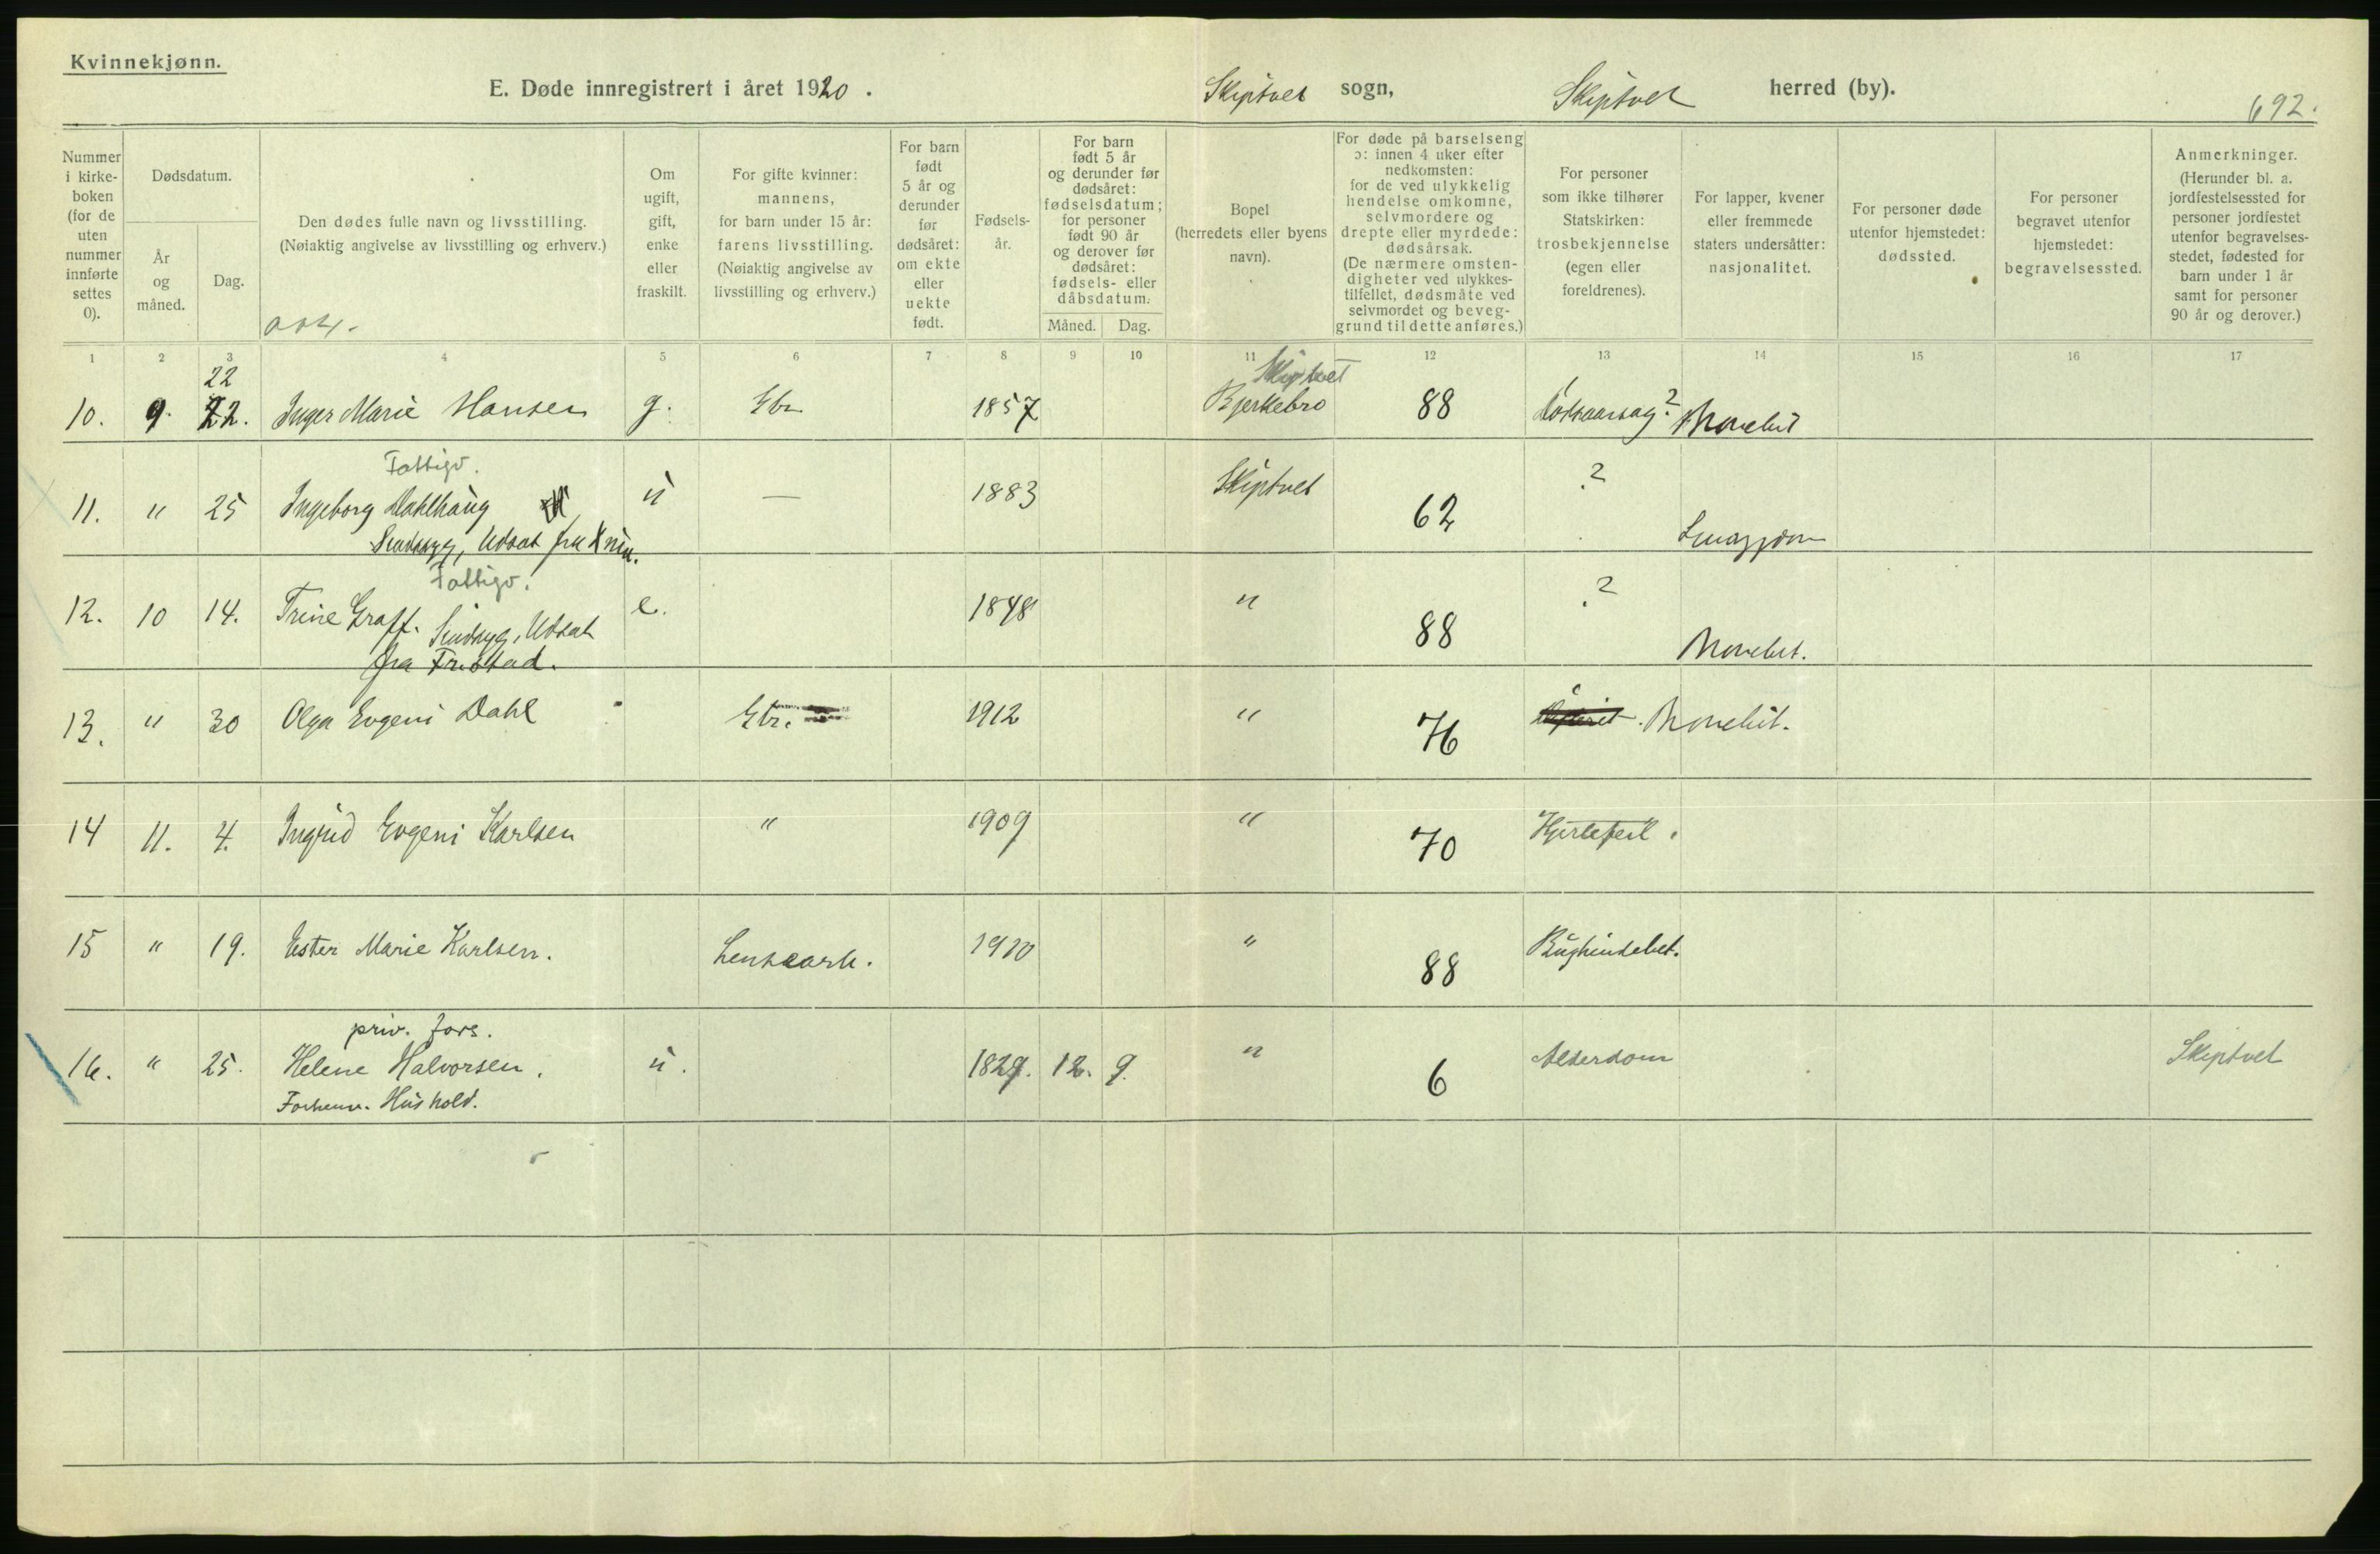 Kvinnekjønn.
E. Døde innregistrert i året 1920. Skiptvet sogn, Skiptvet herred (by). 692.
Nummer i kirke-boken (for de uten nummer innførte settes 0).
Dødsdatum.
År og måned.
Dag.
Den dødes fulle navn og livsstilling.
(Nøiaktig angivelse av livsstilling og erhverv.)
Om ugift, gift, enke eller fraskilt.
For gifte kvinner: mannens, for barn under 15 år: farens livsstilling. (Nøiaktig angivelse av livsstilling og erhverv.)
For barn født 5 år og derunder før dødsåret: om ekte eller uekte født.
Fødsels-år.
For barn født 5 år og derunder før dødsåret: fødselsdatum; for personer født 90 år og derover før dødsåret: fødsels- eller dåbsdatum.
Måned. Dag.
Bopel (herredets eller byens navn).
For døde på barselseng ɔ: innen 4 uker efter nedkomsten: for de ved ulykkelig hendelse omkomne, selvmordere og drepte eller myrdede: dødsårsak. (De nærmere omsten-digheter ved ulykkes-tilfellet, dødsmåte ved selvmordet og beveg-grund til dette anføres.)
For personer som ikke tilhører Statskirken: trosbekjennelse (egen eller foreldrenes).
For lapper, kvener eller fremmede staters undersåtter: nasjonalitet.
For personer døde utenfor hjemstedet: dødssted.
For personer begravet utenfor hjemstedet: begravelsessted.
Anmerkninger. (Herunder bl. a. jordfestelsessted for personer jordfestet utenfor begravelses-stedet, fødested for barn under 1 år samt for personer 90 år og derover.)
1 2 3 4 5 6 7 8 9 10 11 12 13 14 15 16 17
22 Skiptvet
10. 9. 22. Inger Marie Hansen g. Gbr 1857 Bjerkebro 88 Dødsaarsag?
Fattigv.
11. " 25 Ingeborg Dahlhaug u — 1883 Skiptvet 62 ?
Sindssyg, Udsat fra
Fattigv.
12. 10 14. Trine Graff. Sindsyg, Udsat e. 1848 " 88 ?
fra Fr.stad.
13. " 30 Olga Evgeni Dahl Gbr. 1912 " 76
14 11. 4. Ingrid Evgeni Karlsen " 1909 " 70 Hjertefeil.
15 " 19. Ester Marie Karlsen. Lensearb. 1910 " 88 Bughindebet.
priv. fors.
16. " 25. Helene Halvorsen. u. 1829. 12. 9. " 6 Alderdom Skiptvet
Forhenv. Hushold.